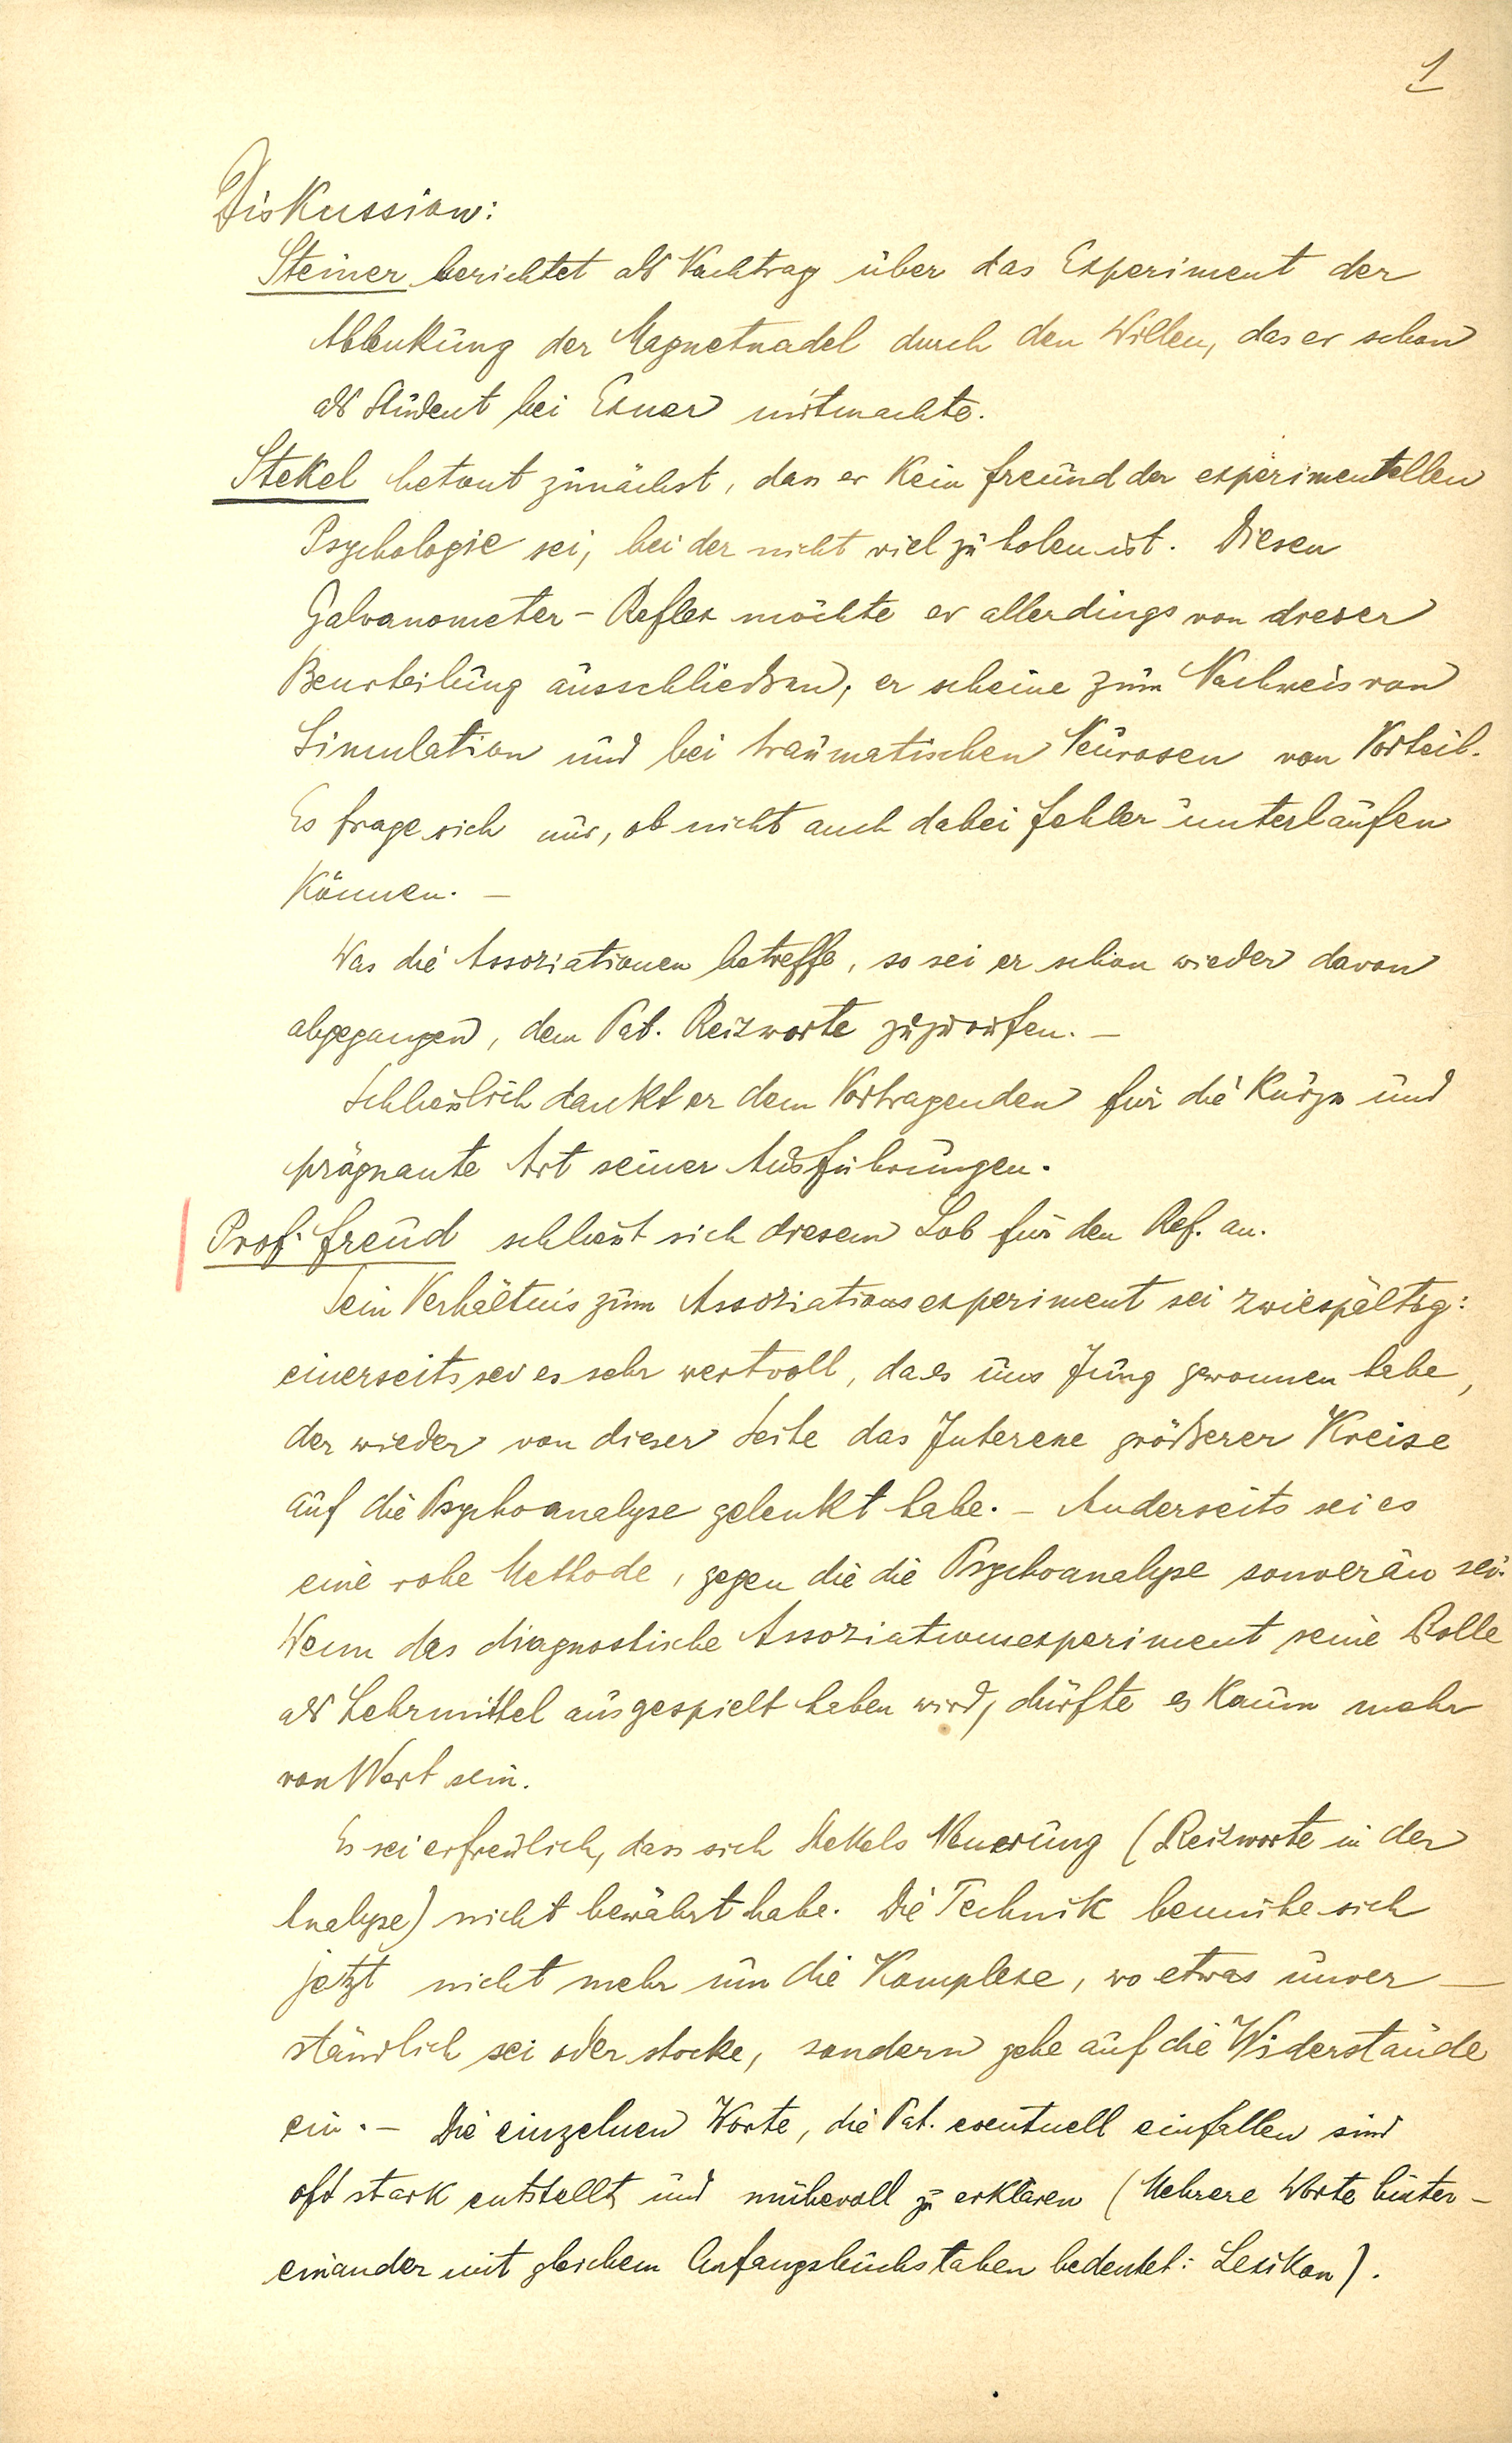 1
Diskussion:
Steiner berichtet als Nachtrag über das Experiment der
Ablenkung der Magnetnadel durch den Willen, das er schon
als Student bei Exner mitmachte.
Stekel betont zunächst, dass er kein Freund der experimentellen
Psychologie sei, bei der nicht viel zu holen ist. Diesen
Galvanometer-Reflex möchte er allerdings von dieser
Beurteilung ausschließen; er scheine zum Nachweis von
Simulation und bei traumatischen Neurosen von Vorteil.
Es frage sich nur, ob nicht auch dabei Fehler unterlaufen
können. —
Was die Assoziationen betreffe, so sei er schon wieder davon
abgegangen, dem Pat. Reizworte zuzurufen. —
Schliesslich dankt er dem Vortragenden für die kurze und
prägnante Art seiner Ausführungen.
Prof. Freud schliesst sich diesem Lob für den Ref. an.
Sein Verhältnis zum Assoziationsexperiment sei zwiespältig:
einerseits sei es sehr wertvoll, da es uns Jung gewonnen habe,
der wieder von dieser Seite das Interesse größerer Kreise
auf die Psychoanalyse gelenkt habe. — Anderseits sei es
eine rohe Methode, gegen die die Psychoanalyse souverän sei.
Wenn das diagnostische Assoziationsexperiment seine Rolle
als Lehrmittel ausgespielt haben wird, dürfte es kaum mehr
von Wert sein.
Es sei erfreulich, dass sich Stekels Neuerung (Reizworte in der
Analyse) nicht bewährt habe. Die Technik bemühe sich
jetzt nicht mehr um die Komplexe, wo etwas unver-
ständlich sei oder stocke, sondern gehe auf die Widerstände
ein. — Die einzelnen Worte, die Pat. eventuell einfallen sind
oft stark entstellt und mühevoll zu erklären (Mehrere Worte hinter-
einander mit gleichem Anfangsbuchstaben bedeutet: Lexikon).